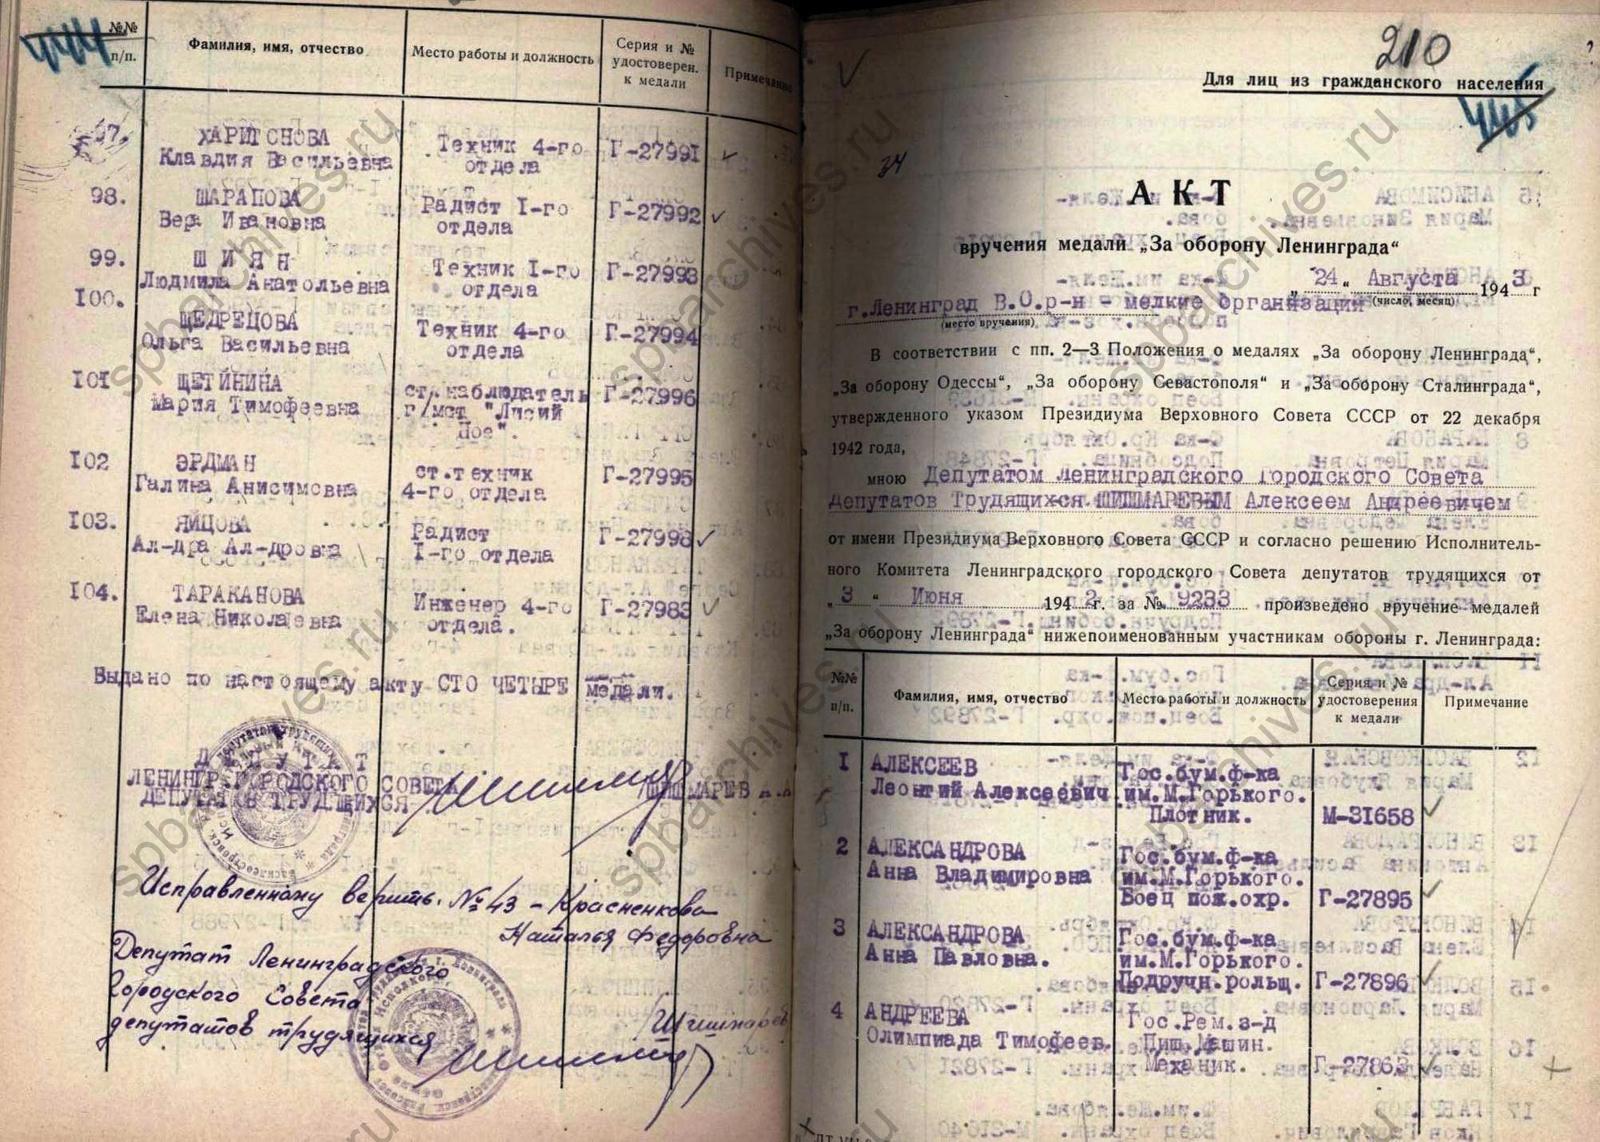 №№
п/п.
Фамилия, имя, отчество
Место работы и должность
Серия и №
удостоверен.
к медали
Примечание
444
97.
ХАРИТОНОВА
Клавдия Васильевна
Техник 4-го
отдела
Г-27991
98.
ШАРАПОВА
Вера Ивановна
Радист I-го
отдела
Г-27992
99.
ШИЯН
Людмила Анатольевна
Техник I-го
отдела
Г-27993
I00.
ЩЕДРЕЦОВА
Ольга Васильевна
Техник 4-го
отдела
Г-27994
I0I
ЩЕТИНИНА
Мария Тимофеевна
ст.наблюдатель
г/мст "Лисий
Нос".
Г-27996
I02
ЭРДМАН
Галина Анисимовна
ст.техник
4-го отдела
Г-27995
I03.
ЯЙЦОВА
Ал-дра Ал-дровна
Радист
I-го отдела
Г-27998
I04.
ТАРАКАНОВА
Елена Николаевна
Инженер 4-го
отдела.
Г-27983
Выдано по настоящему акту СТО ЧЕТЫРЕ медали.
ДЕПУТАТ
ЛЕНИНГР.ГОРОДСКОГО СОВЕТА
ДЕПУТАТОВ ТРУДЯЩИХСЯ
ШИШМАРЕВ А.А
Исправленному верить. № 43 - Красненкова
Наталья Федоровна
Депутат Ленинградского
Городского Совета
депутатов трудящихся
Шишмарев
210
Для лиц из гражданского населения
445
34
АКТ
вручения медали „За оборону Ленинграда“
„ 24 “ Августа 1943 г
(число, месяц)
г.Ленинград В.О.р-н - мелкие организации
(место вручения)
В соответствии с пп. 2—3 Положения о медалях „За оборону Ленинграда“,
„За оборону Одессы“, „За оборону Севастополя“ и „За оборону Сталинграда“,
утвержденного указом Президиума Верховного Совета СССР от 22 декабря
1942 года,
мною Депутатом Ленинградского Городского Совета
Депутатов Трудящихся ШИШМАРЕВЫМ Алексеем Андреевичем
от имени Президиума Верховного Совета СССР и согласно решению Исполнитель-
ного Комитета Ленинградского городского Совета депутатов трудящихся от
„ 3 “ Июня 1942 г. за № 9233 произведено вручение медалей
„За оборону Ленинграда“ нижепоименованным участникам обороны г. Ленинграда:
№№
п/п.
Фамилия, имя, отчество
Место работы и должность
Серия и №
удостоверения
к медали
Примечание
I
АЛЕКСЕЕВ
Леонтий Алексеевич
Гос.бум.ф-ка
им.М.Горького.
Плотник.
М-31658
2
АЛЕКСАНДРОВА
Анна Владимировна
Гос.бум.ф-ка
им.М.Горького.
Боец пож.охр.
Г-27895
3
АЛЕКСАНДРОВА
Анна Павловна.
Гос.бум.ф-ка
им.М.Горького.
Подручн.рольщ.
Г-27896
4
АНДРЕЕВА
Олимпиада Тимофеев.
Гос.Рем.з-д
Пиш.Машин.
Механик.
Г-27863
spbarchives.ru